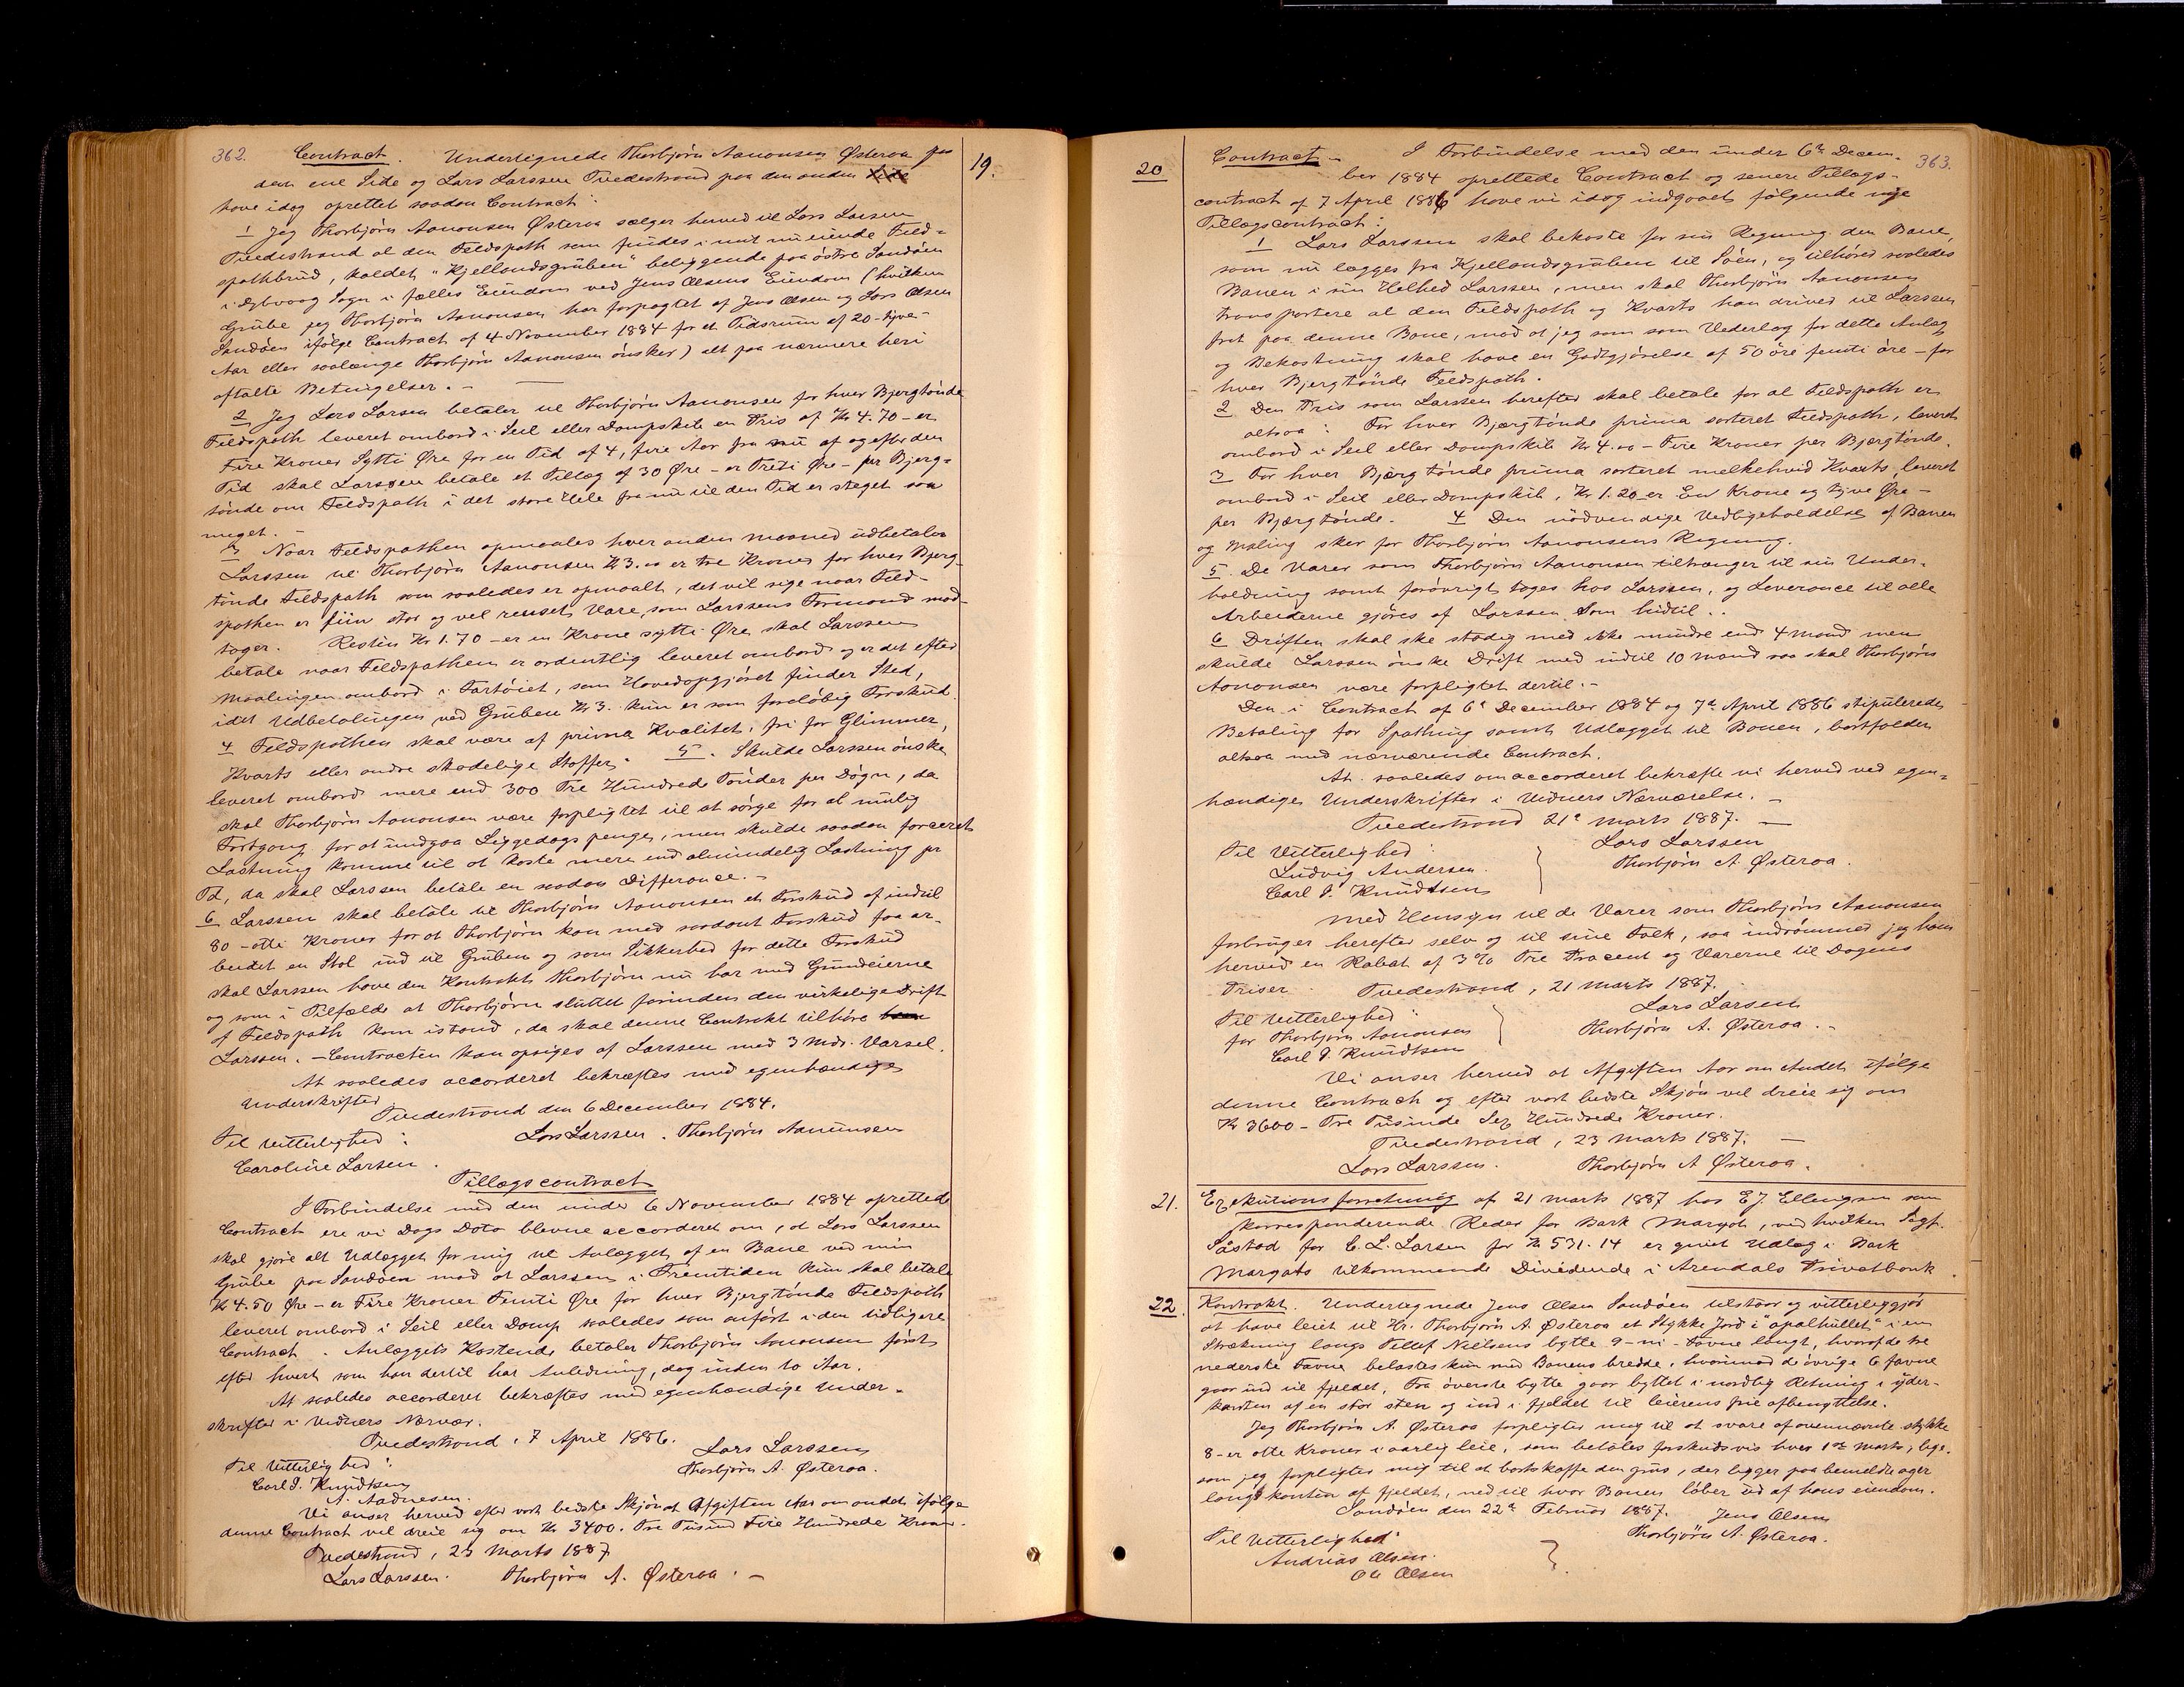 362. Contract. Undertegnede Thorbjörn Aanonsen Østeraa paa
den ene Side og Lars Larssen Tvedestrand paa den anden Side
have idag oprettet saadan Contract:
1 Jeg Thorbjörn Aanonsen Østeraa sælger herved til Lars Larsen
Tvedestrand al den Feldspath som findes i mit nu eiende Feld-
spathbrud, kaldet "Kjellandsgruben" beliggende paa östre Sandöen
i Dybvaag Sogn i fælles Eiendom ved Jens Olsens Eiendom (hvilken
Grube jeg Thorbjörn Aanonsen har forpagtet af Jens Olsen og Lars Olsen
Sandöen ifölge Contract af 4 November 1884 for et Tidsrum af 20 - tyve -
Aar eller saalænge Thorbjörn Aanonsen önsker) alt paa nærmere heri
aftalte Betingelser. -
2 Jeg Lars Larsen betaler til Thorbjörn Aanonsen for hver Bjergtönde
Feldspath leveret ombord i Seil eller Dampskib en Pris af Kr 4.70 - er
Fire Kroner Sytti Øre for en Tid af 4, fire Aar fra nu af og efter den
Tid skal Larssen betale et Tillæg af 30 Øre - er Treti Øre - pr Bjerg-
tönde om Feldspath i det store Hele fra nu til den Tid er steget saa
meget.
3 Naar Feldspathen opmaales hver anden maaned udbetaler
Larssen til Thorbjörn Aanonsen Kr 3.00 er tre Kroner for hver Bjerg-
tönde Feldspath som saaledes er opmaalt, det vil sige naar Feld-
spathen er fiin stor og vel renset Vare, som Larssens Formand mod-
tager. Resten Kr 1.70 - er en Krone sytti Øre skal Larssen
betale naar Feldspathen er ordentlig leveret ombord og er det efter
Maalingen ombord i Fartöiet, som Hovedopgjöret finder Sted,
idet Udbetalingen ved Gruben Kr 3. kun er som foreløbig Forskud.
4 Feldspathen skal være af prima Kvalitet, fri for Glimmer,
Kvarts eller andre skadelige Stoffer. 5. Skulde Larssen önske
leveret ombord mere end 300 Tre Hundrede Tönder per Dögn, da
skal Thorbjörn Aanonsen være forpligtet til at sörge for al mulig
Fortgang for at undgaa Liggedagspenge, men skulde saadan forceret
Lastning komme til at koste mere end almindelig Lastning pr
Td, da skal Larssen betale en saadan Differance. -
6 Larssen skal betale til Thorbjörn Aanonsen et Forskud af indtil
80 - otti Kroner for at Thorbjörn kan med saadant Forskud faa ar-
beidet en Stol ind til Gruben og som Sikkerhed for dette Forskud
skal Larssen have den Kontrakt Thorbjörn nu har med Grundeierne
og som i Tilfælde at Thorbjörn sluttet forinden den virkelige Drift
af Feldspath kom istand, da skal denne Contrakt tilhöre
Larssen. - Contracten kan opsiges af Larssen med 3 Mdr. Varsel.
At saaledes accorderet bekræftes med egenhændige
Underskrifter
Tvedestrand den 6 December 1884.
Til Vitterlighed: Lars Larssen. Thorbjörn Aanonsen
Caroline Larsen.
Tillægscontract
I Forbindelse med den under 6 November 1884 oprettede
Contract ere vi Dags Dato blevne accorderet om, at Lars Larssen
skal gjöre alt Udlægget for mig til Anlægget af en Bane ved min
Grube paa Sandöen mod at Larssen i Fremtiden kun skal betale
Kr 4.50 Øre - er Fire Kroner Femti Øre for hver Bjergtönde Feldspath
leveret ombord i Seil eller Damp saaledes som anfört i den tidligere
Contract. Anlæggets Kostende betaler Thorbjörn Aanonsen först
efter hvert som han dertil har Anledning, dog inden to Aar.
At saaledes accorderet bekræftes med egenhændige Under-
skrifter i Vidners Nærvær.
Tvedestrand, 7 April 1886.
Lars Larssen
Til Vitterlighed: Thorbjörn A. Østeraa.
Carl J. Knudtsen
A. Aadnesen.
Vi anser herved efter vort bedste Skjön at Afgiften Aar om andet ifölge
denne Contract vil dreie sig om Kr 3400. Tre Tusind Fire Hundrede Kroner.
Tvedestrand, 23 Marts 1887
Lars Larssen. Thorbjörn A. Østeraa. -
19.
20
363.
Contract - I Forbindelse med den under 6te Decem-
ber 1884 oprettede Contract og senere Tillægs-
contract af 7 April 1886 have vi idag indgaaet følgende nye
Tillægscontract:
1 Lars Larssen skal bekoste for sin Regning den Bane,
som nu lægges fra Kjellandsgruben til Søen, og tilhører saaledes
Banen i sin Helhed Larssen, men skal Thorbjörn Aanonsen
transportere al den Feldspath og Kvarts han driver til Larssen
frit paa denne Bane, mod at jeg som som Vederlag for dette Anlæg
og Bekostning skal have en Godtgjörelse af 50 öre femti öre - for
hver Bjergtönde Feldspath.
2 Den Pris som Larssen herefter skal betale for al Feldspath er
altsaa: For hver Bjergtönde prima sorteret Feldspath, leveret
ombord i Seil eller Dampskib Kr 4.00 - Fire Kroner per Bjærgtönde.
3 For hver Bjærgtönde prima sorteret melkehvid Kvarts leveret
ombord i Seil eller Dampskib, Kr 1.20 er En Krone og tyve Øre -
per Bjærgtönde. 4 Den nödvendige Vedligeholdelse af Banen
og Maling sker for Thorbjörn Aanonsens Regning.
5 De Varer som Thorbjörn Aanonsen tiltrænger til sin Under-
holdning samt forövrigt tages hos Larssen, og Leverance til alle
Arbeiderne gjöres af Larssen som hidtil..
6 Driften skal ske stadig med ikke mindre end 4 mand men
skulde Larssen önske Drift med indtil 10 mand saa skal Thorbjörn
Aanonsen være forpligtet dertil. -
Den i Contract af 6te December 1884 og 7de April 1886 stipulerede
Betaling for Spathing samt Udlægget til Banen, bortfalder
altsaa med nærværende Contract.
At saaledes om accorderet bekræfte vi herved ved egen-
hændiges Underskrifter i Vidners Nærværelse. -
Tvedestrand 21de Marts 1887. -
Til Vitterlighed: Lars Larssen
Ludvig Andersen. Thorbjörn A. Østeraa.
Carl J. Knudtsen
Med Hensyn til de Varer som Thorbjörn Aanonsen
forbruger herefter selv og til sine Folk, saa indrömmer jeg ham
herved en Rabat af 3% Tre Procent og Varerne til Dagens
Priser. Tvedestrand, 21 Marts 1887.
Til Vitterlighed: Lars Larsen
for Thorbjörn Aanonsen Thorbjörn A. Østeraa. -
Carl J. Knudtsen
Vi anser herved at Afgiften Aar om Andet ifölge
denne Contract og efter vort bedste Skjön vil dreie sig om
Kr 3600 - Tre Tusinde Sex Hundrede Kroner.
Tvedestrand, 23 Marts 1887. -
Lars Larssen. Thorbjörn A Østeraa.
21. Exekutionsforretning af 21 marts 1887 hos E J. Ellingsen som
korresponderende Reder for Bark Margot, ved hvilken Sagf.
for C. L. Larsen for Kr 531.14 er givet Udlæg i Bark
Margots tilkommende Dividende i Arendals Privatbank
22. Kontrakt. Undertegnede Jens Olsen Sandöen tilstaar og vitterliggjör
at have leiet til Hr. Thorbjörn A. Østeraa et Stykke Jord i "apalhullet" i en
Strækning langs Tellef Nielsens bytte 9 - ni - Favne langt, hvoraf de tre
nederste Favne belastes kun med Banens bredde, hvorimod de övrige 6 favne
gaar ind til fjeldet, fra överste bytte gaar byttet i nordlig Retning i yder-
kanten af en stor sten og ind i fjeldet til leierens frie afbenyttelse.
Jeg Thorbjörn A. Østeraa forpligter mig til at svare af ovennævnte stykke
8 - er otte Kroner i aarlig leie, som betales forskudsvis hver 1ste Marts, lige-
som jeg forpligter mig til at bortskaffe den grus, der ligger paa bemeldte ager
langs kanten af fjeldet, ned til hvor Banen löber ud af hans eiendom.
Sandöen den 22de Februar 1887. Jens Olsen
Til Vitterlighed: Thorbjörn A. Østeraa.
Andreas Olsen.
Ole Olsen